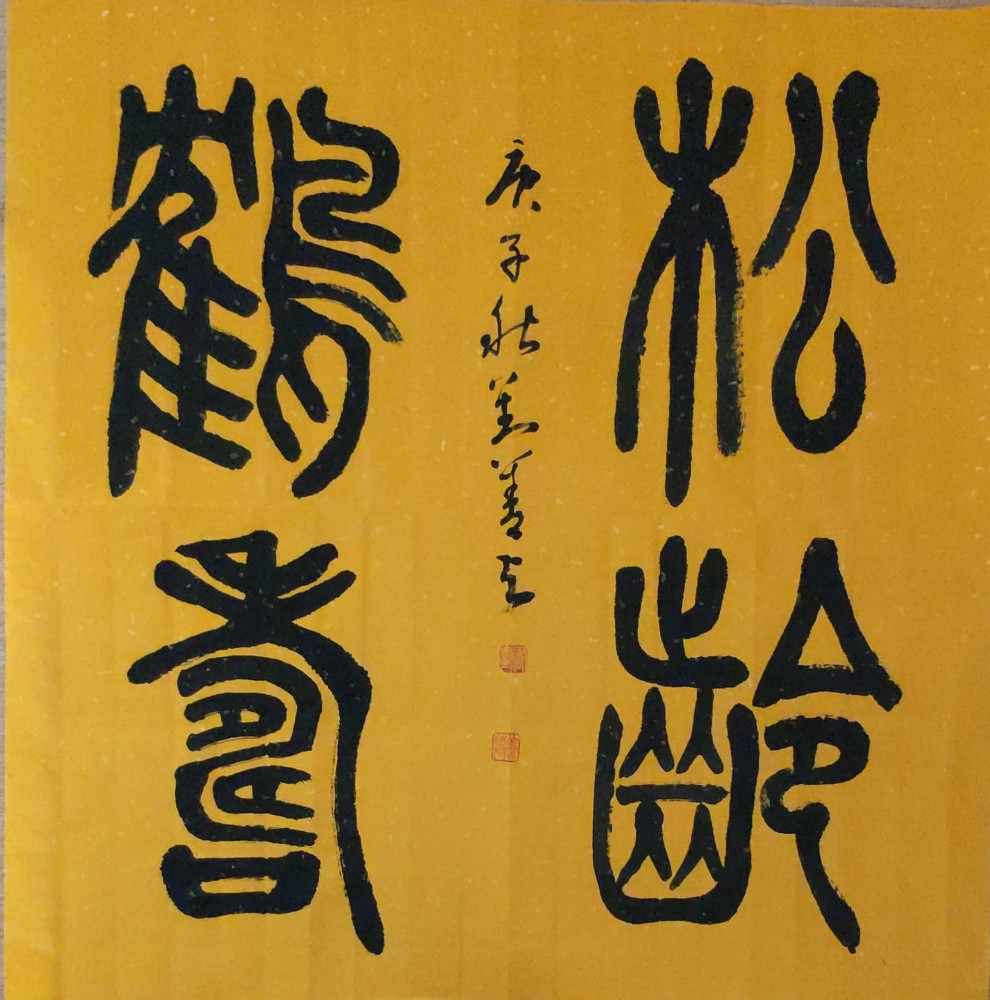 松齡
鶴壽
庚子秋善